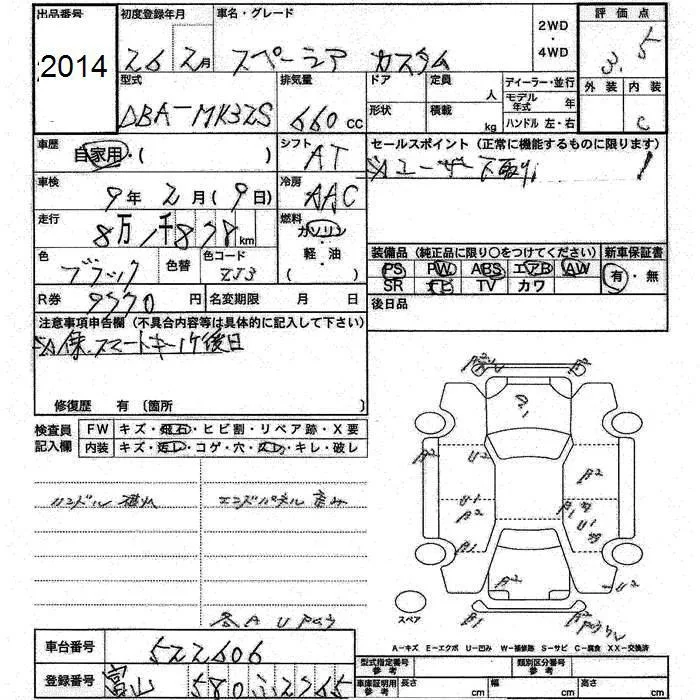 出品番号 初度登録年月 車名・グレード 2WD・4WD 評価点
2014 26 2月 スペーシア カスタム 3.5
型式 排気量 ドア 定員 人 ディーラー・並行 外装 内装
DBA-MK32S 660 cc 形状 積載 kg モデル年式 年 C
ハンドル 左・右
車歴 自家用・( ) シフト AT セールスポイント (正常に機能するものに限ります)
ユーザー下取り!
車検 9年2月(9日) 冷房 AAC
走行 8万1千878km 燃料 ガソリン・軽油 ( )
装備品 (純正品に限り○をつけてください) 新車保証書
色 ブラック 色替 色コード ZJ3 PS PW ABS エアB AW 有・無
SR ナビ TV カワ
R券 9970円 名変期限 月 日 後日品
注意事項申告欄 (不具合内容等は具体的に記入して下さい)
保.スマートキー1ケ後日
修復歴 有 〔箇所 〕
検査員記入欄 FW キズ・飛石・ヒビ割・リペア跡・X要
内装 キズ・汚レ・コゲ・穴・スレ・キレ・破レ
ハンドル 磁ハ エンドパネル 歪み
各A U
A2 A2
A2 U2 A2
U1 A2 A1
A1 U1
A2 U2
A1 A2
スペア
A−キズ E−エクボ U−凹み W−補修跡 S−サビ C−腐食 XX−交換済
車台番号 522606 型式指定番号 参考 類別区分番号 参考
登録番号 富山 580 ふ2265 車庫証明用 参考 長さ cm 幅 cm 高さ cm